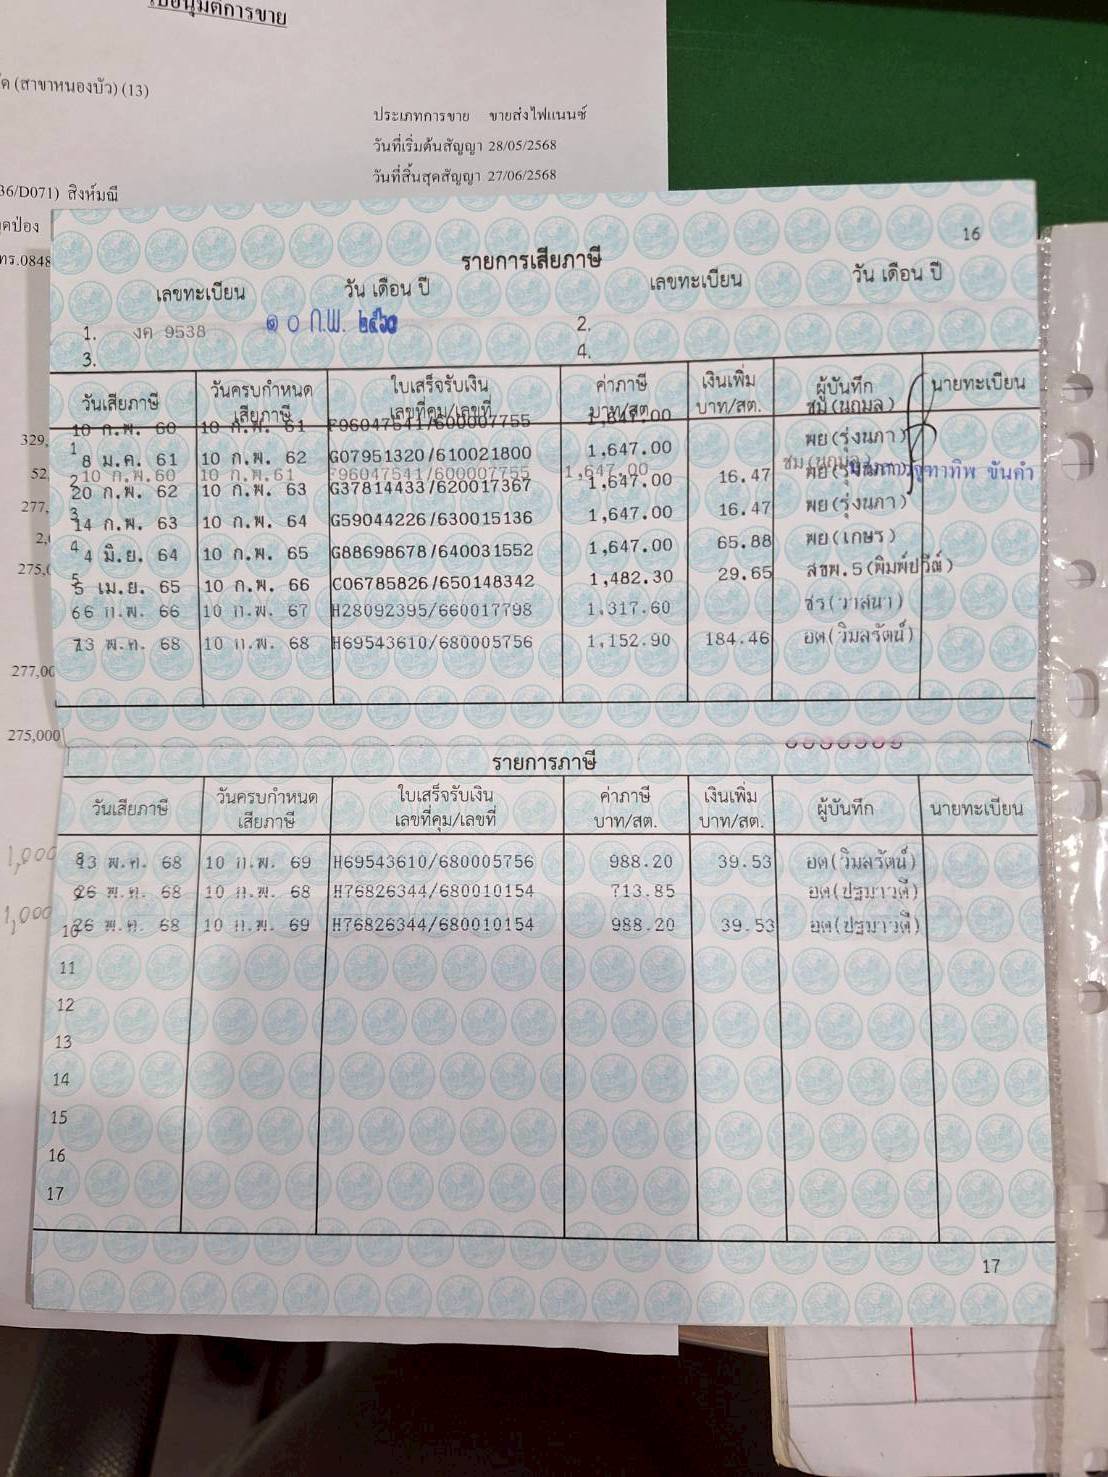 ใบอนุมัติการขาย
ัด (สาขาหนองบัว) (13)
ประเภทการขาย ขายส่งไฟแนนซ์
วันที่เริ่มต้นสัญญา 28/05/2568
วันที่สิ้นสุดสัญญา 27/06/2568
36/D071) สิงห์มณี
ุดป่อง
ทร.0848
329,
52,
277,
275,0
277,00
275,000
1,000
1,000
16
รายการเสียภาษี
เลขทะเบียน วัน เดือน ปี เลขทะเบียน วัน เดือน ปี
1. งค 9538 ๑๐ ก.พ. ๒๕๖๐ 2.
3. 4.
วันเสียภาษี วันครบกำหนด ใบเสร็จรับเงิน ค่าภาษี เงินเพิ่ม ผู้บันทึก นายทะเบียน
เสียภาษี เลขที่คุม/เลขที่ บาท/สต. บาท/สต.
10 ก.พ. 60 10 ก.พ. 61 F96047541/600007755 1,647.00 ชม(นฤมล)
1 8 ม.ค. 61 10 ก.พ. 62 G07951320/610021800 1,647.00 พย(รุ่งนภา)
10 ก.พ.60 10 ก.พ.61 F96047541/600007755 1,647.00 ชม(นฤมล) จุฑาทิพ ขันคำ
2 20 ก.พ. 62 10 ก.พ. 63 G37814433/620017367 1,647.00 16.47 พย(รุ่งนภา)
3 14 ก.พ. 63 10 ก.พ. 64 G59044226/630015136 1,647.00 16.47 พย(รุ่งนภา)
4 4 มิ.ย. 64 10 ก.พ. 65 G88698678/640031552 1,647.00 65.88 พย(เกษร)
5 5 เม.ย. 65 10 ก.พ. 66 C06785826/650148342 1,482.30 29.65 สขพ.5(พิมพ์ปวีณ์)
6 6 ก.พ. 66 10 ก.พ. 67 H28092395/660017798 1,317.60 ชร(วาสนา)
7 13 พ.ค. 68 10 ก.พ. 68 H69543610/680005756 1,152.90 184.46 อด(วิมลรัตน์)
รายการภาษี
วันเสียภาษี วันครบกำหนด ใบเสร็จรับเงิน ค่าภาษี เงินเพิ่ม ผู้บันทึก นายทะเบียน
เสียภาษี เลขที่คุม/เลขที่ บาท/สต. บาท/สต.
8 13 พ.ค. 68 10 ก.พ. 69 H69543610/680005756 988.20 39.53 อด(วิมลรัตน์)
9 26 พ.ค. 68 10 ก.พ. 68 H76826344/680010154 713.85 อด(ปฐมาวดี)
10 26 พ.ค. 68 10 ก.พ. 69 H76826344/680010154 988.20 39.53 อด(ปฐมาวดี)
11
12
13
14
15
16
17
17